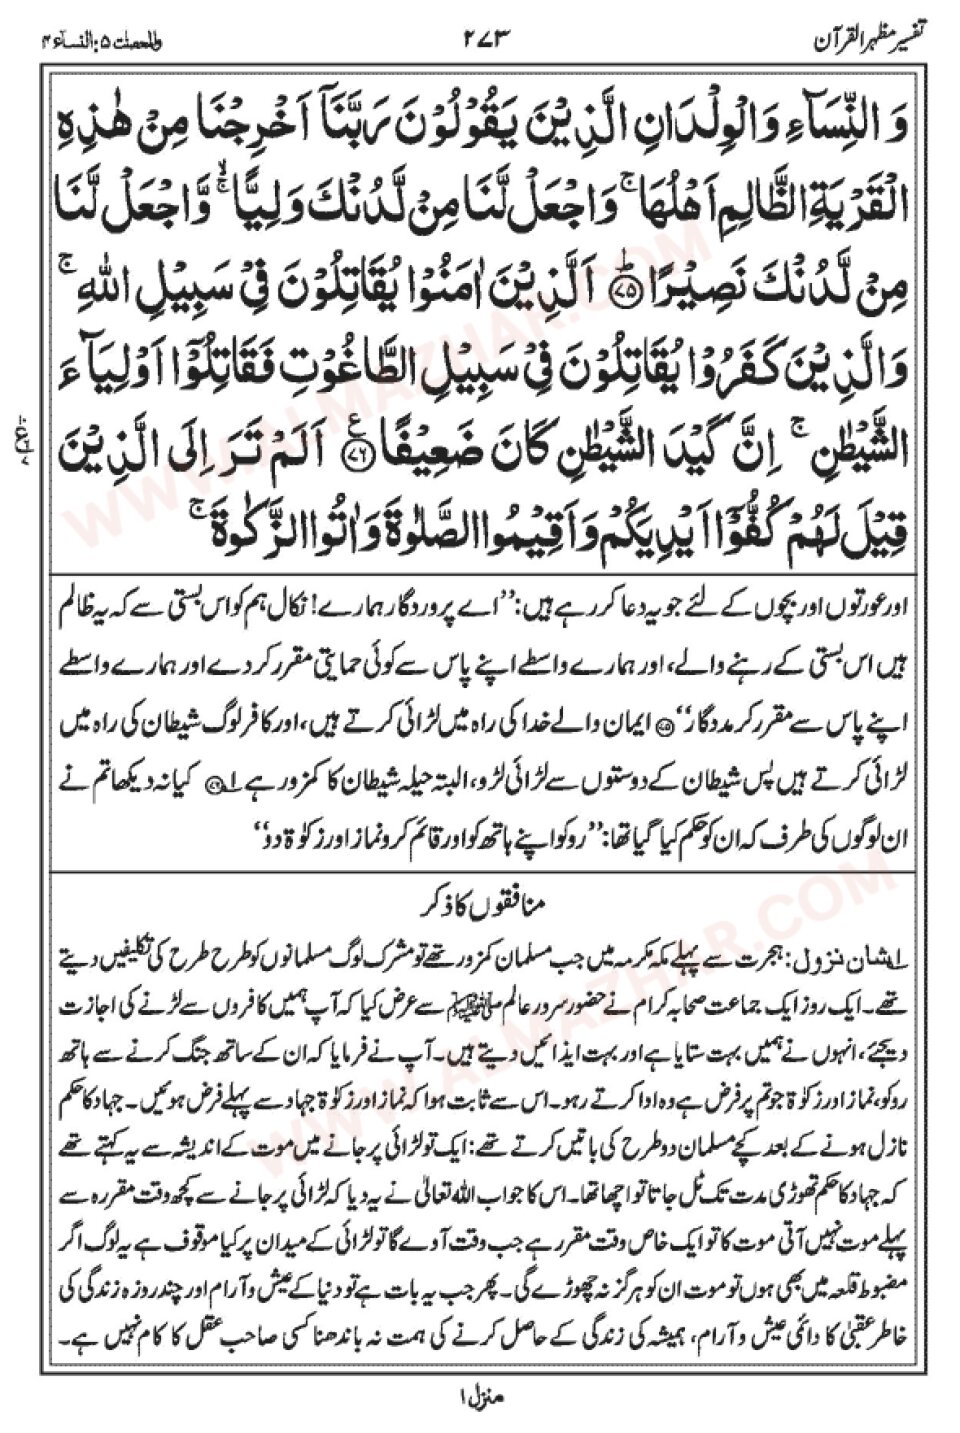 تفسیر مظہر القرآن
۲۷۳
والمحصنٰت ۵: النسآء ۴
وَالنِّسَآءِ وَالْوِلْدَانِ الَّذِيْنَ يَقُوْلُوْنَ رَبَّنَآ اَخْرِجْنَا مِنْ هٰذِهِ
الْقَرْيَةِ الظَّالِمِ اَهْلُهَا ۚ وَاجْعَلْ لَّنَا مِنْ لَّدُنْكَ وَلِيًّا ۙۚ وَّاجْعَلْ لَّنَا
مِنْ لَّدُنْكَ نَصِيْرًا ﴿۷۵﴾ؕ اَلَّذِيْنَ اٰمَنُوْا يُقَاتِلُوْنَ فِيْ سَبِيْلِ اللّٰهِ ۚ
وَالَّذِيْنَ كَفَرُوْا يُقَاتِلُوْنَ فِيْ سَبِيْلِ الطَّاغُوْتِ فَقَاتِلُوْٓا اَوْلِيَآءَ
الشَّيْطٰنِ ۚ اِنَّ كَيْدَ الشَّيْطٰنِ كَانَ ضَعِيْفًا ﴿۷۶﴾ع اَلَمْ تَرَ اِلَى الَّذِيْنَ
قِيْلَ لَهُمْ كُفُّوْٓا اَيْدِيَكُمْ وَاَقِيْمُوا الصَّلٰوةَ وَاٰتُوا الزَّكٰوةَ ۚ
اور عورتوں اور بچوں کے لئے جو یہ دعا کر رہے ہیں: ’’اے پروردگار ہمارے! نکال ہم کو اس بستی سے کہ یہ ظالم
ہیں اس بستی کے رہنے والے، اور ہمارے واسطے اپنے پاس سے کوئی حمایتی مقرر کر دے اور ہمارے واسطے
اپنے پاس سے مقرر کر مددگار‘‘ ﴿۷۵﴾ ایمان والے خدا کی راہ میں لڑائی کرتے ہیں، اور کافر لوگ شیطان کی راہ میں
لڑائی کرتے ہیں پس شیطان کے دوستوں سے لڑائی لڑو، البتہ حیلہ شیطان کا کمزور ہے ۱ ﴿۷۶﴾ کیا نہ دیکھا تم نے
ان لوگوں کی طرف کہ ان کو حکم کیا گیا تھا: ’’روکو اپنے ہاتھ کو اور قائم کرو نماز اور زکوٰۃ دو‘‘
منافقوں کا ذکر
۱ شان نزول: ہجرت سے پہلے مکہ مکرمہ میں جب مسلمان کمزور تھے تو مشرک لوگ مسلمانوں کو طرح طرح کی تکلیفیں دیتے
تھے۔ ایک روز ایک جماعت صحابہ کرام نے حضور سرور عالم ﷺ سے عرض کیا کہ آپ ہمیں کافروں سے لڑنے کی اجازت
دیجئے، انہوں نے ہمیں بہت ستایا ہے اور بہت ایذائیں دیتے ہیں۔ آپ نے فرمایا کہ ان کے ساتھ جنگ کرنے سے ہاتھ
روکو، نماز اور زکوٰۃ جو تم پر فرض ہے وہ ادا کرتے رہو۔ اس سے ثابت ہوا کہ نماز اور زکوٰۃ جہاد سے پہلے فرض ہوئیں۔ جہاد کا حکم
نازل ہونے کے بعد کچے مسلمان دو طرح کی باتیں کرتے تھے: ایک تو لڑائی پر جانے میں موت کے اندیشہ سے یہ کہتے تھے
کہ جہاد کا حکم تھوڑی مدت تک ٹل جاتا تو اچھا تھا۔ اس کا جواب اللہ تعالیٰ نے یہ دیا کہ لڑائی پر جانے سے کچھ وقت مقررہ سے
پہلے موت نہیں آتی موت کا تو ایک خاص وقت مقرر ہے جب وقت آوے گا تو لڑائی کے میدان پر کیا موقوف ہے یہ لوگ اگر
مضبوط قلعہ میں بھی ہوں تو موت ان کو ہرگز نہ چھوڑے گی۔ پھر جب یہ بات ہے تو دنیا کے عیش و آرام اور چند روزہ زندگی کی
خاطر عقبیٰ کا دائمی عیش و آرام، ہمیشہ کی زندگی کے حاصل کرنے کی ہمت نہ باندھنا کسی صاحب عقل کا کام نہیں ہے۔
منزل ۱
WWW.ALMAZHAR.COM
WWW.ALMAZHAR.COM